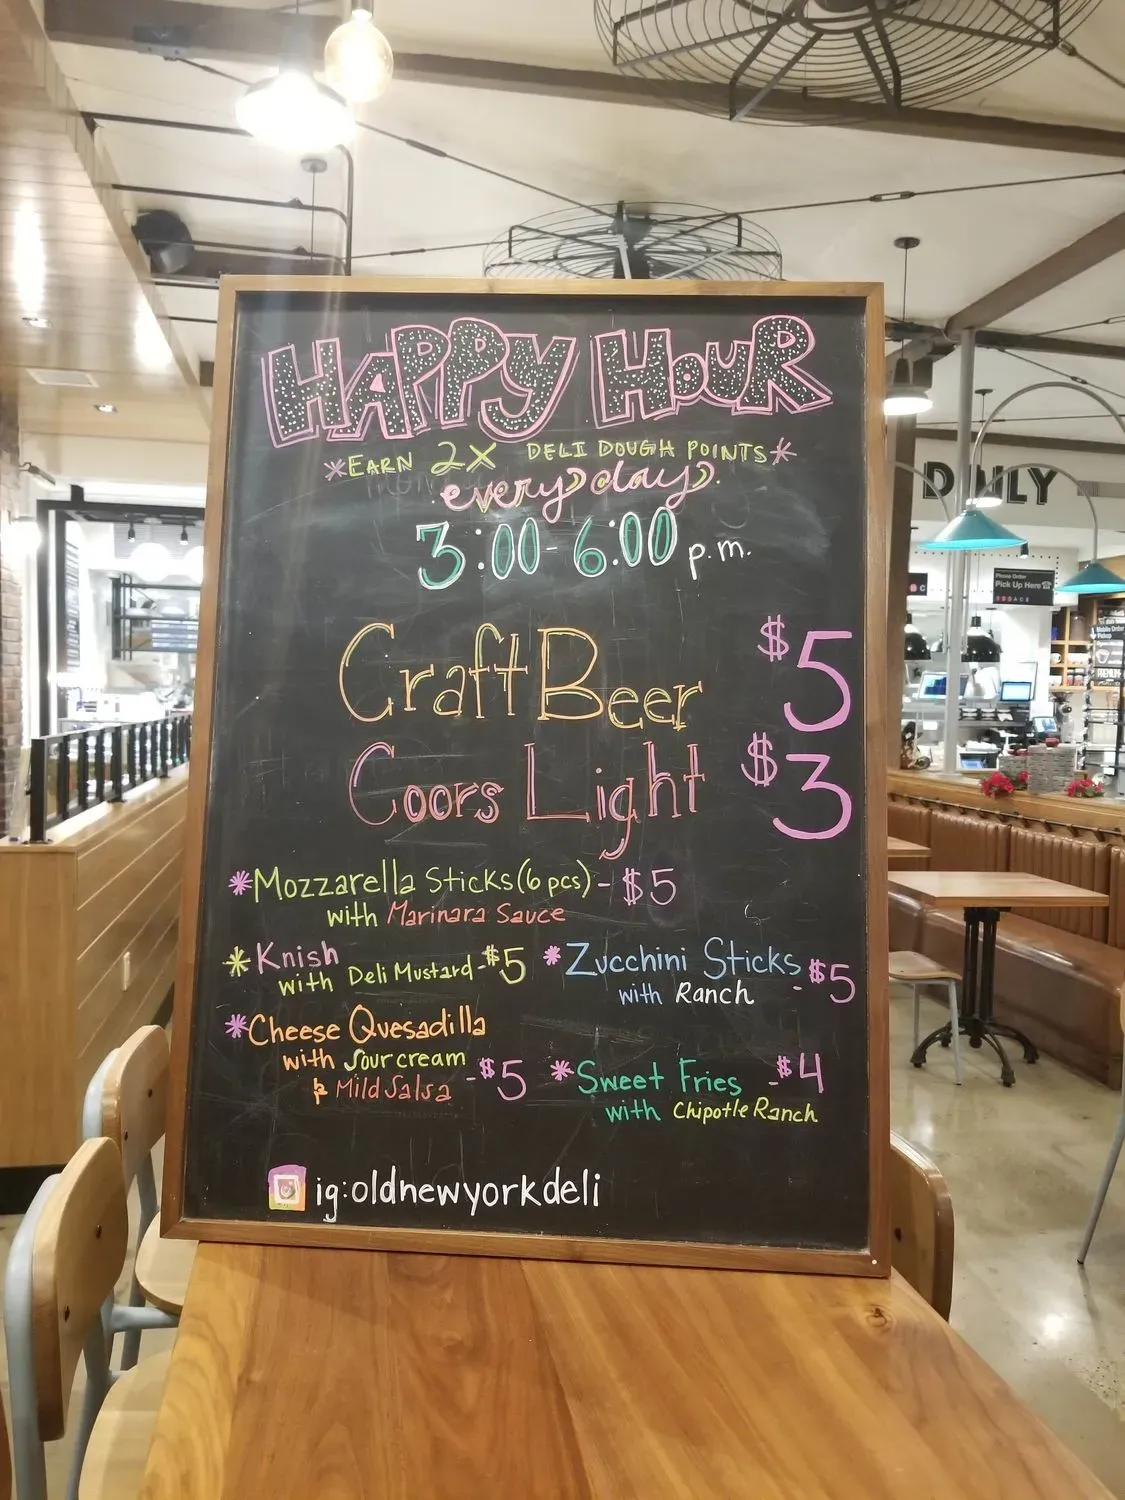 HAPPY HOUR
*EARN 2X DELI DOUGH POINTS*
everyday
3:00-6:00 p.m.
Craft Beer $5
Coors Light $3
*Mozzarella Sticks (6 pcs) - $5
with Marinara Sauce
*Knish
with Deli Mustard - $5
*Zucchini Sticks - $5
with Ranch
*Cheese Quesadilla
with Sour cream
& Mild Salsa - $5
*Sweet Fries - $4
with Chipotle Ranch
ig:oldnewyorkdeli
Phone Order
Pick Up Here
Mobile Order
Pickup